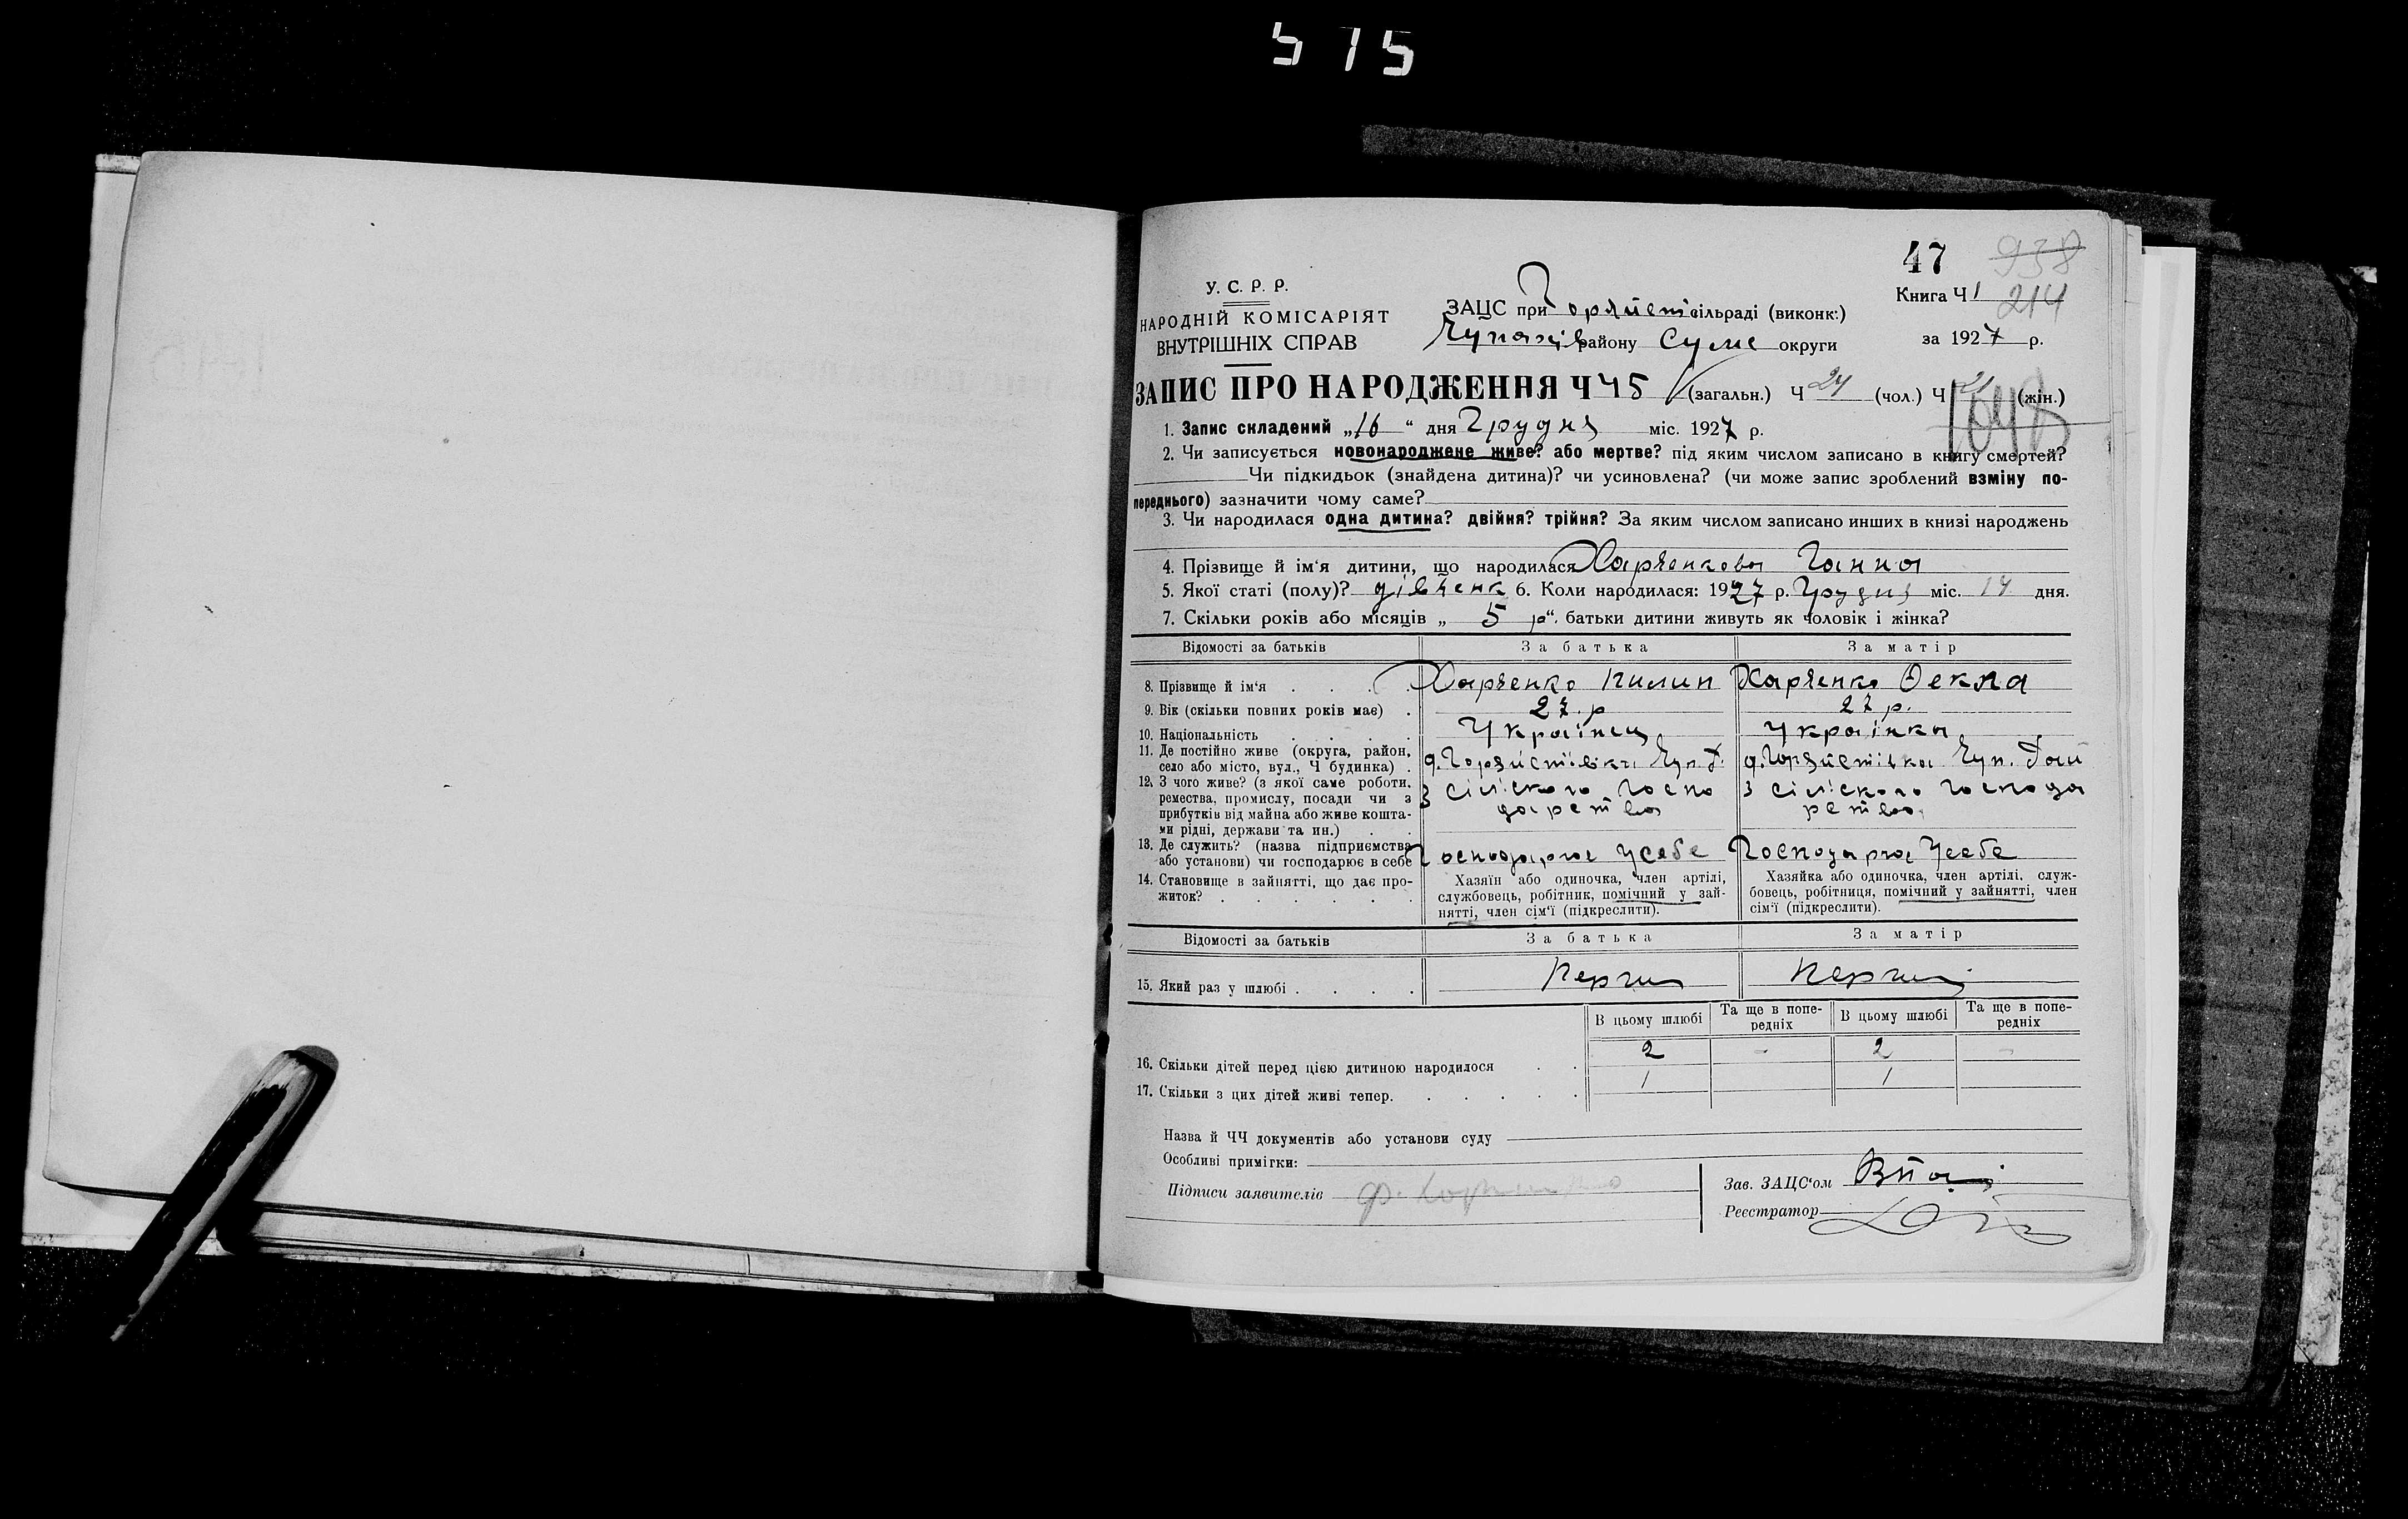 515
47 938
У. С. Р. Р.
НАРОДНІЙ КОМІСАРІЯТ
ВНУТРІШНІХ СПРАВ
ЗАЦС при сільраді (виконк.)
Чупахів району Сумс округи
Книга Ч 1 214
за 1927 р.
ЗАПИС ПРО НАРОДЖЕННЯ Ч 45 (загальн.) Ч 24 (чол.) Ч 21 (жін.)
1048
1. Запис складений „16“ дня Грудня міс. 1927 р.
2. Чи записується новонароджене живе? або мертве? під яким числом записано в книгу смертей?
Чи підкидьок (знайдена дитина)? чи усиновлена? (чи може запис зроблений взміну по-
переднього) зазначити чому саме?
3. Чи народилася одна дитина? двійня? трійня? За яким числом записано инших в книзі народжень
4. Прізвище й ім'я дитини, що народилася Харченкова Ганна
5. Якої статі (полу)? дівченк 6. Коли народилася: 1927 р. Грудня міс. 14 дня.
7. Скільки років або місяців „ 5 р“. батьки дитини живуть як чоловік і жінка?
Відомості за батьків За батька За матір
8. Прізвище й ім'я Харченко Пилип Харченко Фекла
9. Вік (скільки повних років має) 27.р 27 р.
10. Національність Українец Українка
11. Де постійно живе (округа, район,
село або місто, вул., Ч будинка)
12. З чого живе? (з якої саме роботи, з сіліского госпо з сіліского господа
ремества, промислу, посади чи з дарства рства
прибутків від майна або живе кошта-
ми рідні, держави та ин.)
13. Де служить? (назва підприємства
або установи) чи господарює в себе Господарює усебе Господарює усебе
14. Становище в зайнятті, що дає про-
житок?
Хазяїн або одиночка, член артілі,
службовець, робітник, помічний у зай-
нятті, член сім'ї (підкреслити).
Хазяйка або одиночка, член артілі, служ-
бовець, робітниця, помічний у зайнятті, член
сім'ї (підкреслити).
Відомості за батьків За батька За матір
15. Який раз у шлюбі Перши Перши
В цьому шлюбі Та ще в попе-редніх В цьому шлюбі Та ще в попе-редніх
16. Скільки дітей перед цією дитиною народилося 2 - 2 -
17. Скільки з цих дітей живі тепер. 1 1
Назва й ЧЧ документів або установи суду
Особливі примітки:
Підписи заявителів
Зав. ЗАЦС'ом
Реєстратор